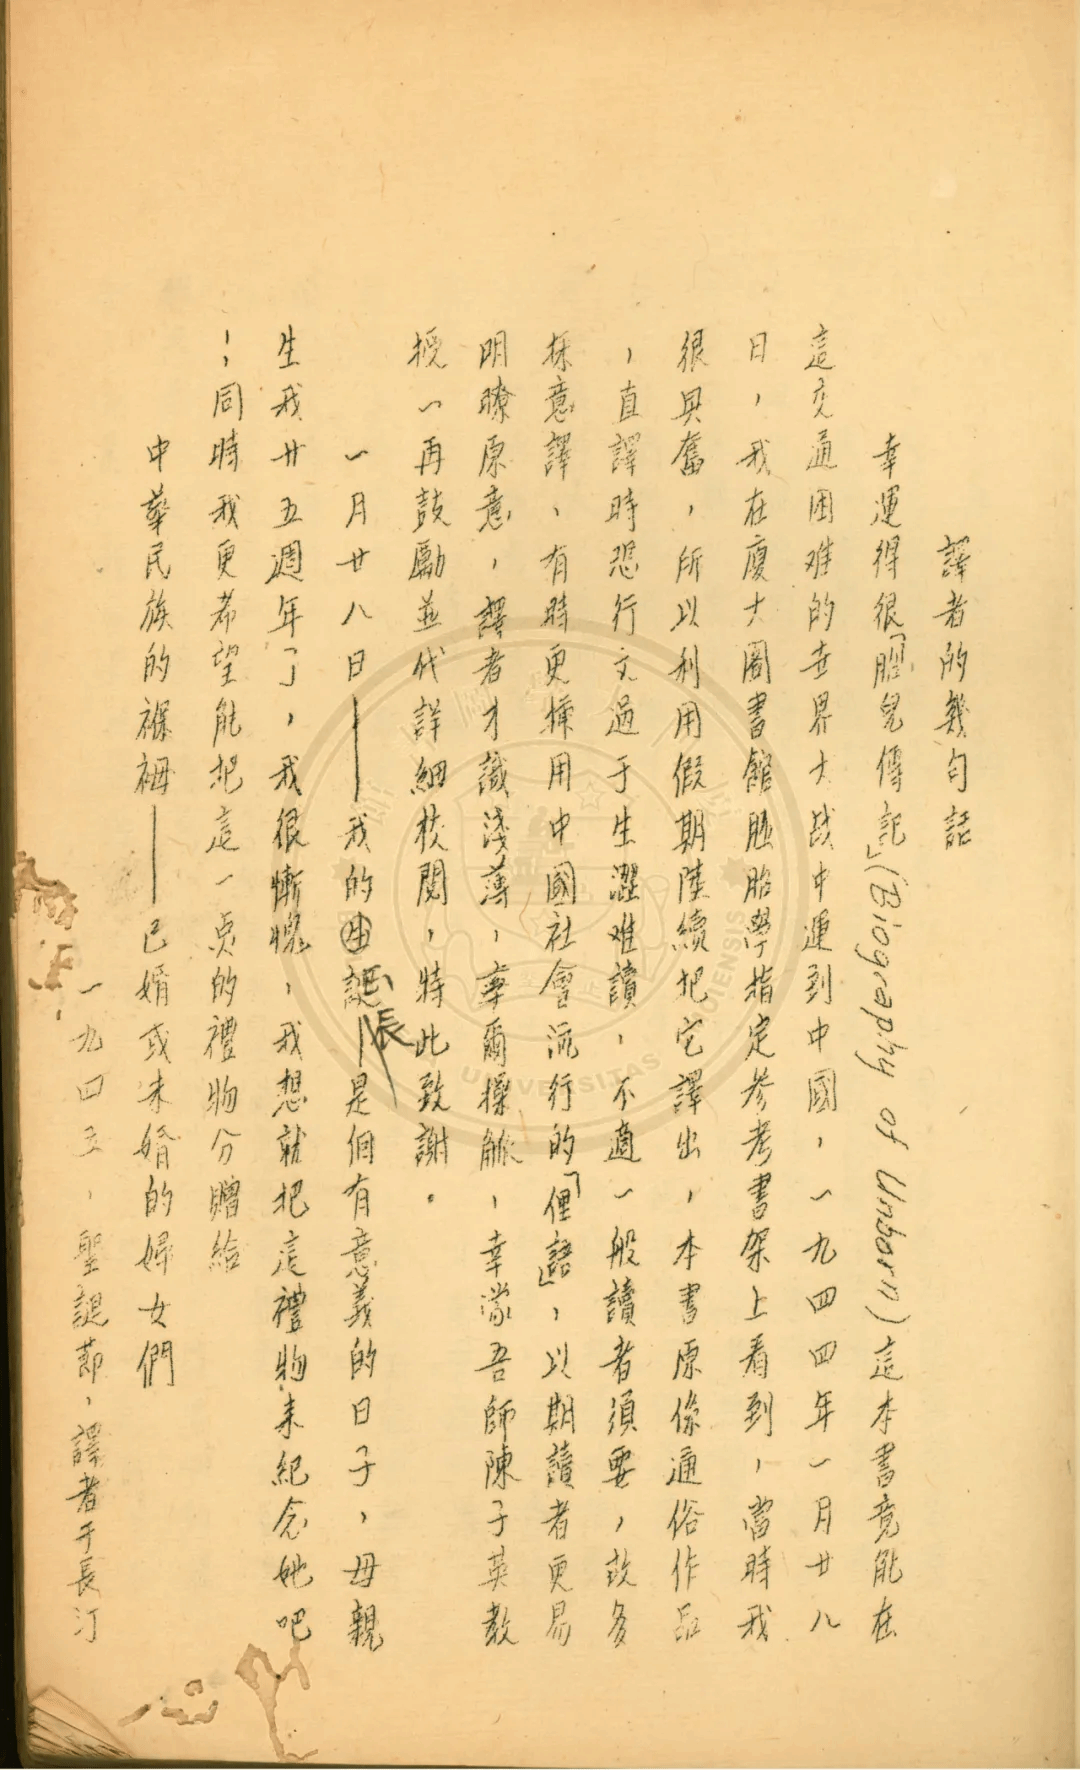 譯者的幾句話
幸運得很「胎兒傳記」(Biography of Unborn)這本書竟能在
這交通困难的世界大战中運到中國,一九四四年一月廿八
日,我在廈大圖書館胚胎學指定参考書架上看到,當時我
很興奮,所以利用假期陸續把它譯出,本書原係通俗作品
,直譯時恐行文過于生澀难讀,不適一般讀者須要,故多
採意譯,有時更採用中國社會流行的「俚語」,以期讀者更易
明瞭原意,譯者才識淺薄,率爾操觚,幸蒙吾師陳子英教
授一再鼓勵並代詳細校閱,特此致謝。
一月廿八日——我的生誕——是個有意義的日子,母親
生我廿五週年了,我很慚愧,我想就把這禮物来紀念她吧
!;同時我更希望能把這一点的禮物分贈給
中華民族的褓姆——已婚或未婚的婦女們
一九四五,聖誕節,譯者于長汀
UNIVERSITAS